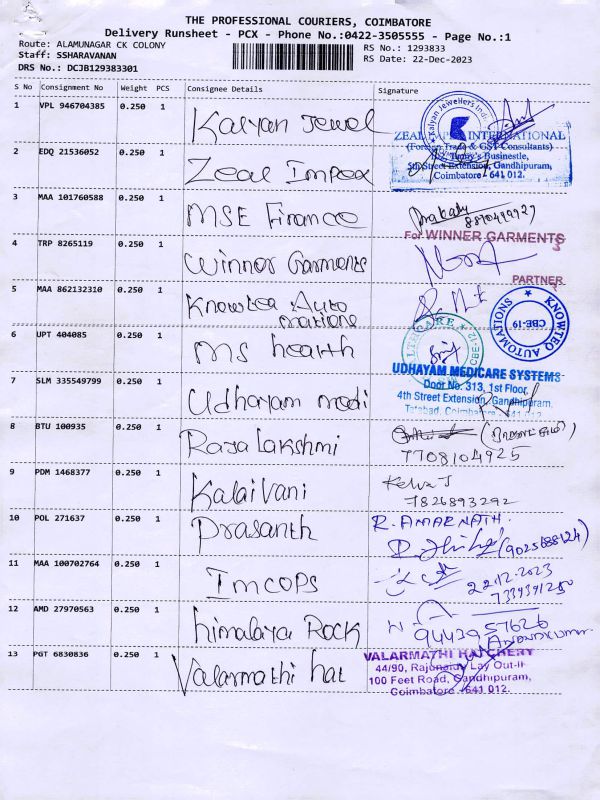 THE PROFESSIONAL COURIERS, COIMBATORE
Delivery Runsheet - PCX - Phone No.:0422-3505555 - Page No.:1
Route: ALAMUNAGAR CK COLONY
RS No.: 1293833
Staff: SSHARAVANAN
RS Date: 22-Dec-2023
DRS No.: DCJB129383301
S No Consignment No Weight PCS Consignee Details Signature
1 VPL 946704385 0.250 1 Kalyan Jewel
Kalyan Jewellers
ZEAL IMPEX INTERNATIONAL
(Foreign Trade & GST Consultants)
5th Street Extension, Gandhipuram,
Coimbatore - 641 012.
2 EDQ 21536052 0.250 1 Zeal Impex
3 MAA 101760588 0.250 1 MSE Finance
For WINNER GARMENTS
4 TRP 8265119 0.250 1 Winner Garments
PARTNER
5 MAA 862132310 0.250 1 Knowteq Auto
mations
KNOWTEQ AUTOMATIONS
CBE-19
6 UPT 404085 0.250 1 MS health
UDHAYAM MEDICARE SYSTEMS
Door No. 313, 1st Floor,
4th Street Extension, Gandhipuram,
Tatabad, Coimbatore - 641 012
7 SLM 335549799 0.250 1 Udhayam medi
8 BTU 100935 0.250 1 Rajalakshmi
7708104925
9 PDM 1468377 0.250 1 Kalaivani
7826893292
10 POL 271637 0.250 1 Prasanth R. AMARNATH.
11 MAA 100702764 0.250 1 IMCOPS 22.12.2023
7339391280
12 AMD 27970563 0.250 1 himalaya Rock 9443957626
Anandkumar
13 PGT 6830836 0.250 1 Valarmathi hat
VALARMATHI HATCHERY
44/90, Rajonaidu Lay Out-II
100 Feet Road, Gandhipuram,
Coimbatore - 641 012.